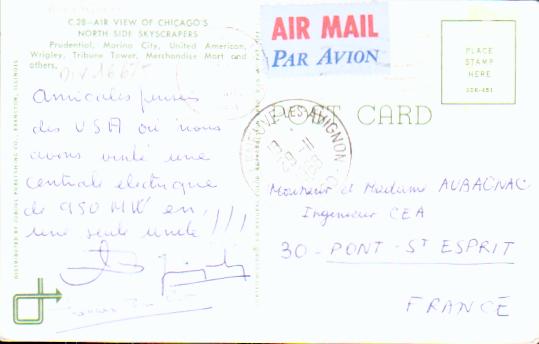 C28-AIR VIEW OF CHICAGO'S
NORTH SIDE SKYSCRAPERS
Prudential, Marina City, United American,
Wrigley, Tribune Tower, Merchandise Mart and
others.
AIR MAIL
PAR AVION
PLACE
STAMP
HERE
POST CARD
LES-AVIGNON
Amicales pensées
des USA où nous
avons visité une
centrale électrique
de 950 MW en
une seule unité !!!
Monsieur et Madame AUBAGNAC
Ingenieur CEA
30 - PONT - ST ESPRIT
FRANCE